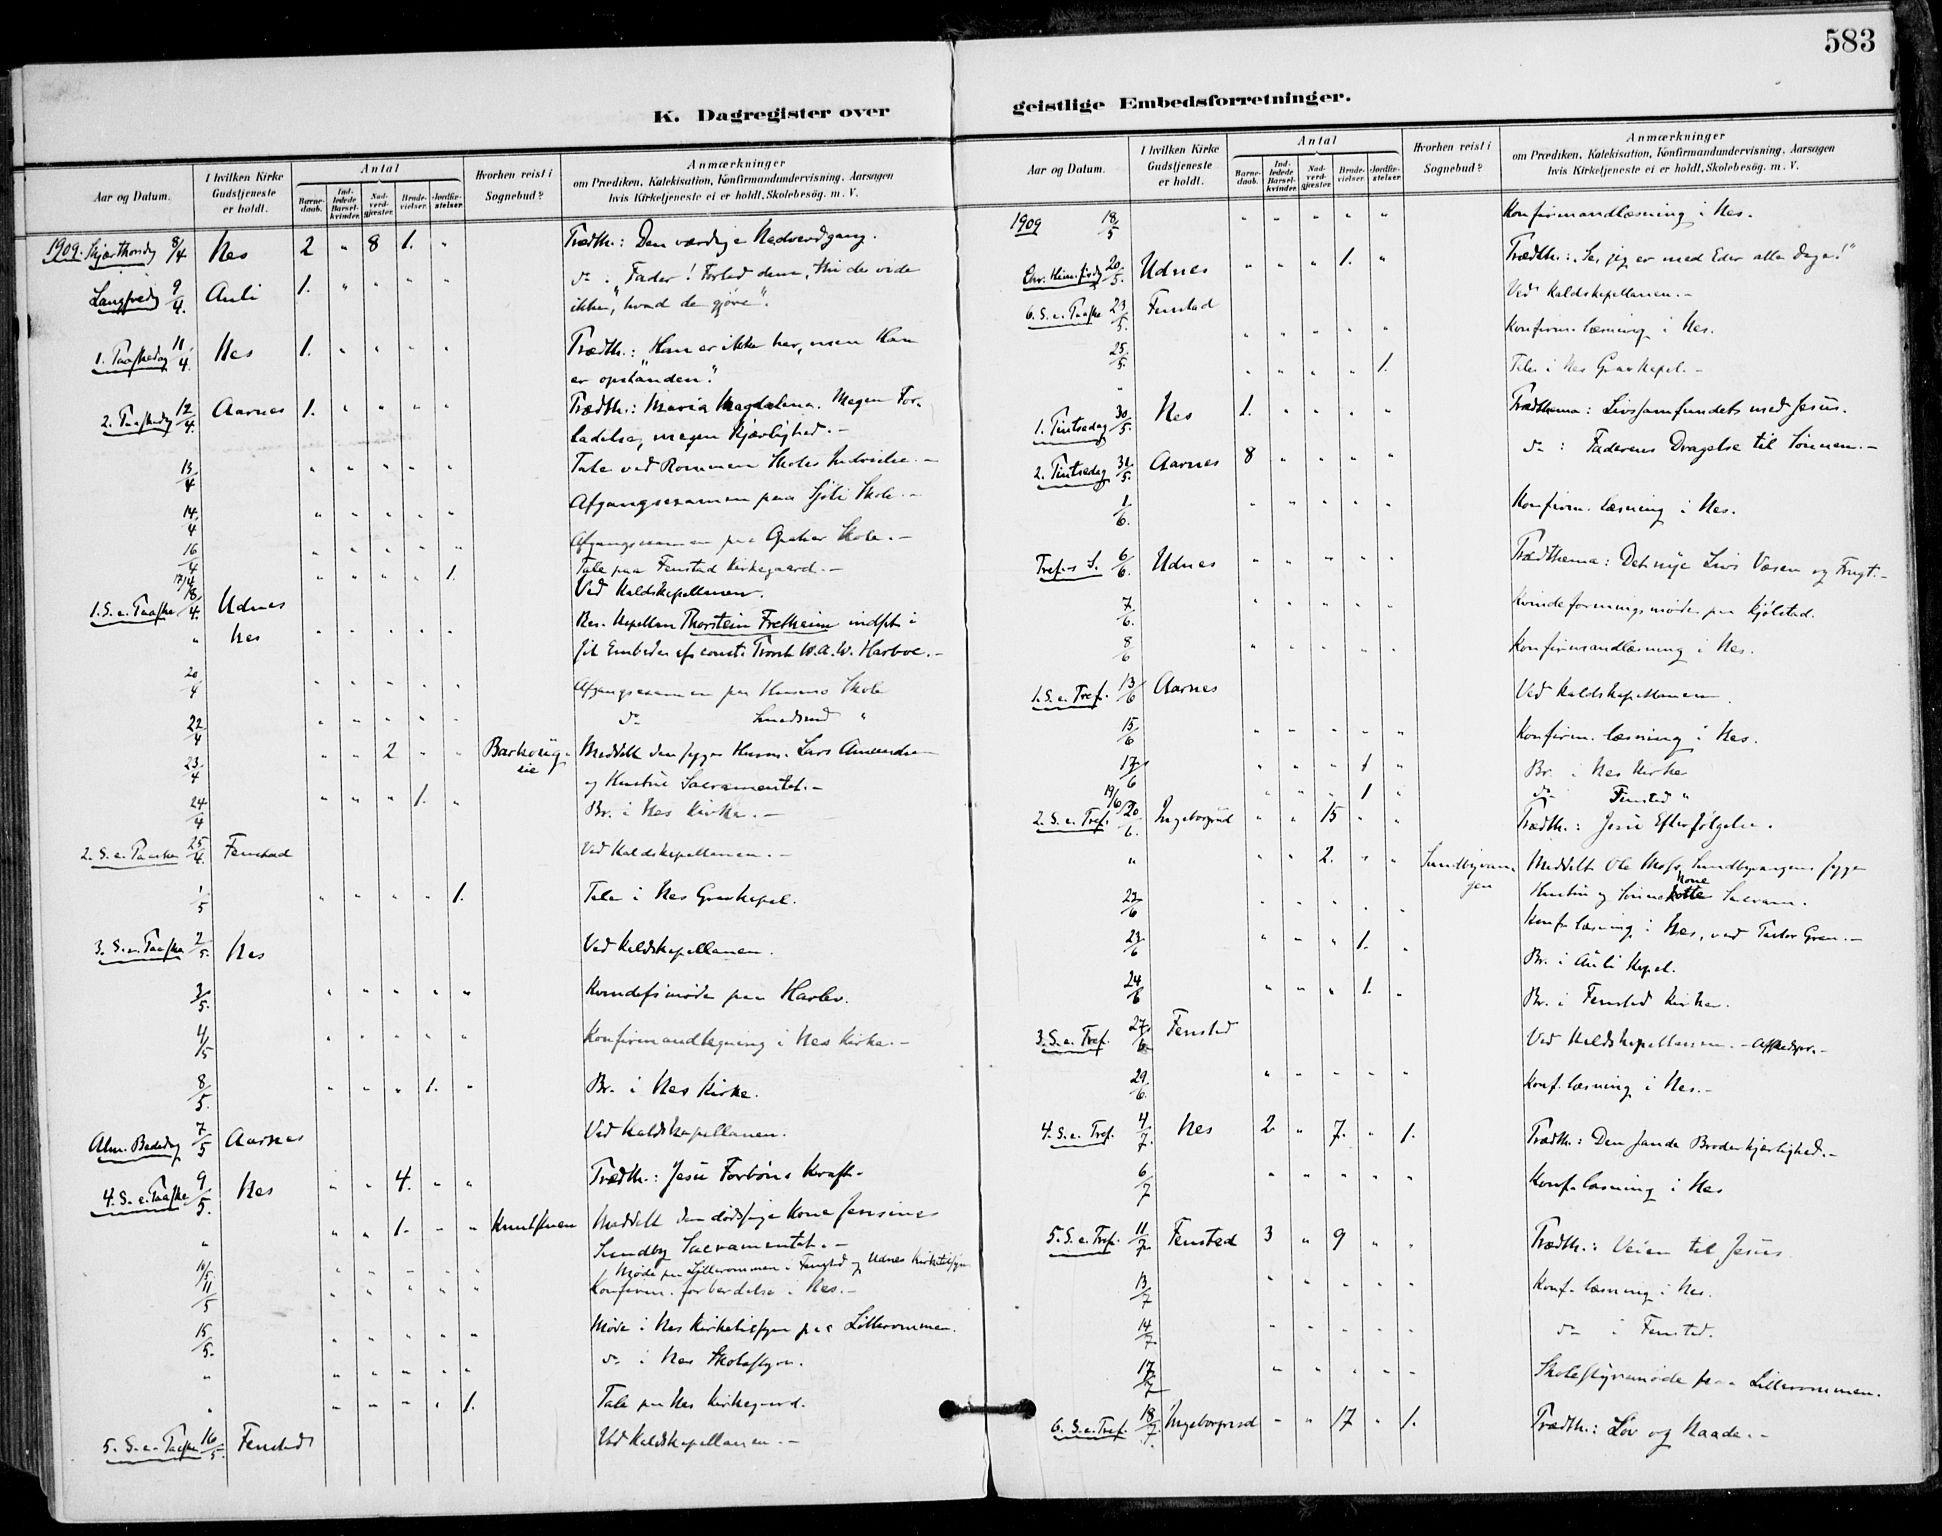 583
K. Dagregister over
Aar og Datum.
I hvilken Kirke Gudstjeneste er holdt.
Antal
Barne-daab.
Ind-ledede Barsel-kvinder.
Nad-verd-gjæster.
Brude-vielser.
Jordfæ-stelser.
Hvorhen reist i Sognebud?
Anmærkninger
om Prædiken, Katekisation, Konfirmandundervisning, Aarsagen
hvis Kirketjeneste ei er holdt, Skolebesög. m. V.
1909. Skjærthorsdg 8/4 Nes 2 " 8 1. " Prædth.: Den værdige Nadverdgang.
Langfredg 9/4. Auli 1. " " " " do : Fader! Forlad dem, thi de vide
ikke, hvad de gjøre".
1. Paaskedag 11/4. Nes 1. " " " " Prædth.: "Han er ikke her, men Han
er opstanden".
2. Paaskedag 12/4. Aarnes 1. " " " " Prædth.: Maria Magdalena. Megen For-
ladelse, megen Kjærlighed. –
13/4 " " " " " Tale ved Rommen Skoles Indvielse. –
14/4 " " " " " Afgangsexamen paa Skole. –
16/4 " " " " " Afgangsexamen paa Opaker Skole. –
17/4 " " " " 1. Tale paa Fenstad Kirkegaard. –
1. S. e. Paaske 18/4. Udnes Ved Kaldskapellanen.
" Nes " " " " " Res. Kapellan Thorstein Fretheim indsat i
sit Embede af const. Provst W. A. W. Harboe. –
20/4 " " " " " Afgangsexamen paa Skole
22/4 " " " " " do "
23/4 " " 2 " " Meddelt den syge Husm. Lars Amundsen
og Hustru Sacramentet. –
24/4 " " " 1. " Br. i Nes Kirke. –
2. S. e. Paaske 25/4. Fenstad Ved Kaldskapellanen. –
1/5 " " " " 1. Tale i Nes Gravkapel.
3. S. e. Paaske 2/5. Nes Ved Kaldskapellanen.
3/5. " " " " " paa Harlev.
4/5 " " " " " Konfirmandlæsning i Nes Kirke. –
8/5. " " " 1. " Br. i Nes Kirke.
Alm. Bededag 7/5 Aarnes Ved Kaldskapellanen.
4. S. e. Paaske 9/5. Nes " " 4. " " Prædth.: Jesu Forbøns Kraft. –
" " " 1. " " Meddelt den dødssyge Kone
Sundby Sacramentet. –
10/5. " " " " " Møde paa Lillerommen i Fenstad og Udnes Kirketilsyn
11/5 " " " " " Konfirm. forberedelse i Nes. –
15/5. " " " " " Møde i Nes Kirketilsyn paa Lillerommen.
" " " " " " do i Nes Skolestyre.
" " " " " 1. Tale paa Nes Kirkegaard.
5. S. e. Paaske 16/5. Fenstad Ved Kaldskapellanen. –
geistlige Embedsforretninger.
Aar og Datum.
I hvilken Kirke Gudstjeneste er holdt.
Antal
Barne-daab.
Ind-ledede Barsel-kvinder.
Nad-verd-gjæster.
Brude-vielser.
Jordfæ-stelser.
Hvorhen reist i Sognebud?
Anmærkninger
om Prædiken, Katekisation, Konfirmandundervisning, Aarsagen
hvis Kirketjeneste ei er holdt, Skolebesög. m. V.
1909 18/5 " " " " " Konfirmandlæsning i Nes.
Chr. Him.fardg 20/5. Udnes " " " 1. " Prædth.: "Se, jeg er med Eder alle Dage!"
6. S. e. Paaske 23/5. Fenstad Ved Kaldskapellanen. –
25/5. " " " " " Konfirm. læsning i Nes.
" " " " " 1. Tale i Nes Gravkapel. –
1. Pintsedag 30/5. Nes 1. " " " " Prædthema: Livssamfundets med Jesus.
2. Pintsedag 31/5. Aarnes 8 " " " " do : Faderens Dragelse til Sønnen. –
1/6. " " " " " Konfirm. læsning i Nes.
Tref.s S. 6/6. Udnes " " " " " Prædthema: Det nye Livs Væsen og Frugt. –
7/6. " " " " " Kvindeforeningsmøde paa Kjølstad.
8/6 " " " " " Konfirmandlæsning i Nes.
1. S. e. Tref. 13/6 Aarnes Ved Kaldskapellanen.
15/6 " " " " " Konfirm. læsning i Nes.
17/6 " " " 1 " Br. i Nes Kirke
19/6 " " " 1 " do Fenstad "
2. S. e. Tref. 20/6. Ingeborgrud " " 15 " " Prædth.: Jesu Efterfølgelse.
" " " 2. " " Sundbyvan-gen Meddelt Ole Sundbyvangens syge
Hustru og Sønnekone Sacram.
22/6 " " " " " Konf. læsning i Nes, ved Pastor Gran. –
23/6 " " " 1. " Br. i Auli Kapel.
24/6 " " " 1. " Br. i Fenstad Kirke.
3. S. e. Tref. 27/6 Fenstad Ved Kaldskapellanen. – Afskedspr. –
29/6. " " " " " Konf. læsning i Nes. –
4. S. e. Tref. 4/7. Nes 2 " 7. " 1. Prædth.: Den sande Broderkjærlighed. –
6/7 " " " " " Konf. læsning i Nes
5. S. e. Tref. 11/7. Fenstad 3 " 9 " " Prædth.: Veien til Jesus.
13/7 " " " " " Konf. læsning i Nes.
14/7 " " " " " do i Fenstad.
17/7 " " " " " Skolestyremøde paa Lillerommen.
6. S. e. Tref. 18/7. Ingeborgrud " " 17 " 1. Prædth.: Lov og Naade. –